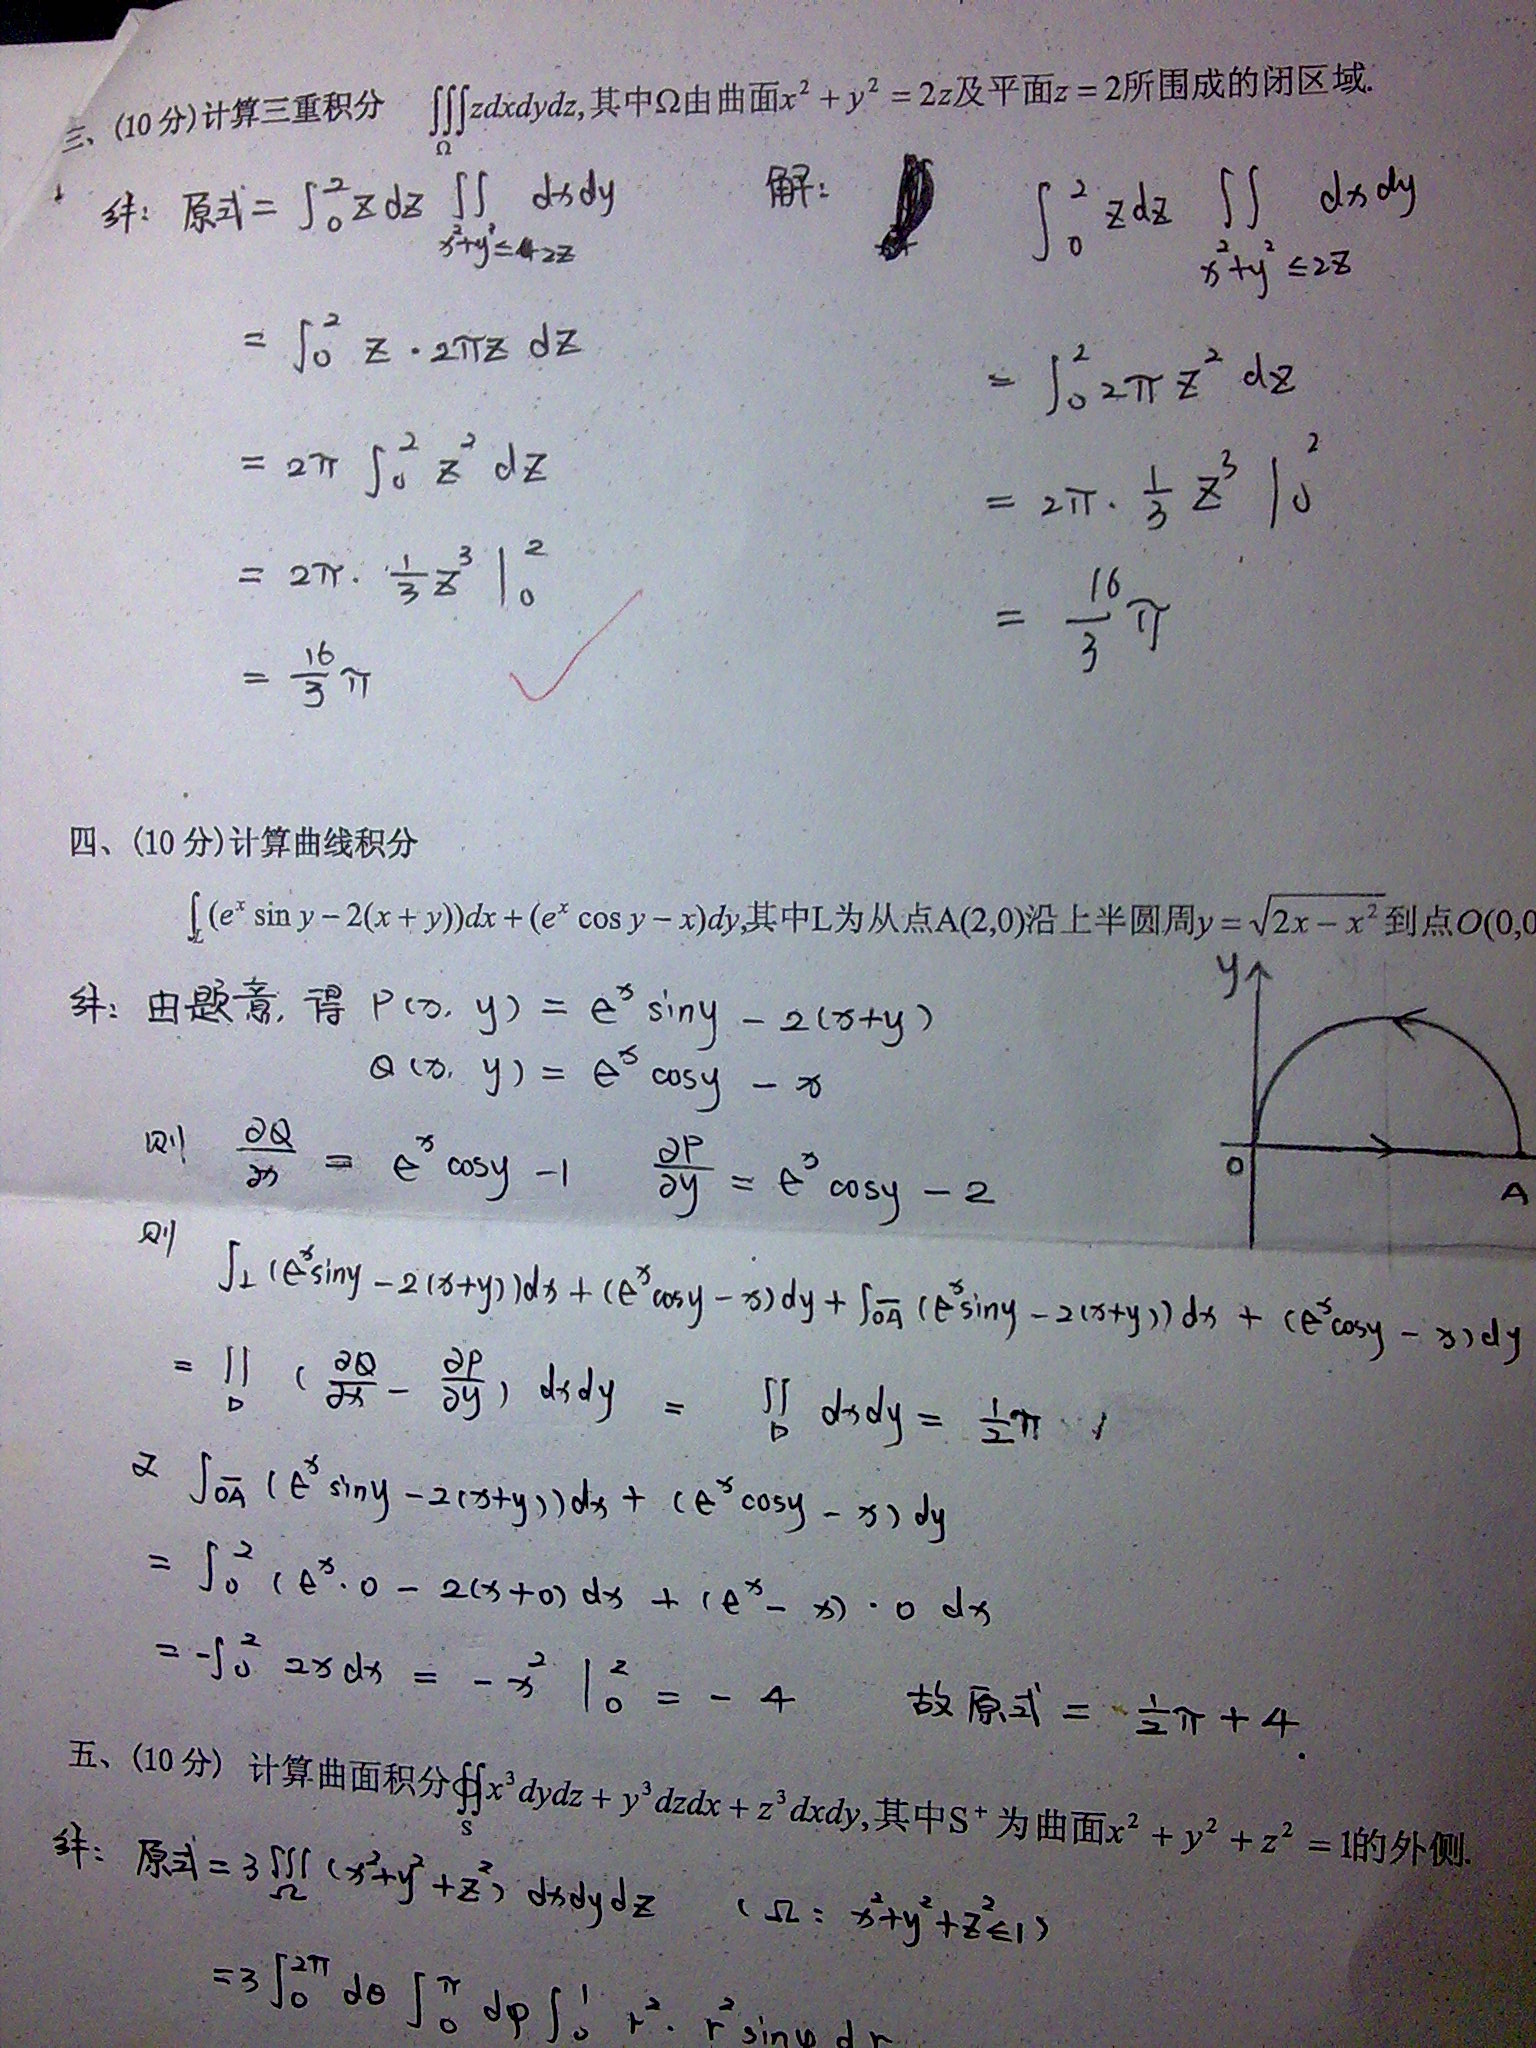 三、(10分)计算三重积分 ∭_Ω zdxdydz,其中Ω由曲面x² + y² = 2z及平面z = 2所围成的闭区域.
解: 原式 = ∫₀² z dz ∬_{x²+y²≤2z} dxdy
= ∫₀² z · 2πz dz
= 2π ∫₀² z² dz
= 2π · 1/3 z³ |₀²
= 16/3 π
解: ∫₀² z dz ∬_{x²+y²≤2z} dxdy
= ∫₀² 2π z² dz
= 2π · 1/3 z³ |₀²
= 16/3 π
四、(10分)计算曲线积分
∫_L (eˣ sin y − 2(x + y))dx + (eˣ cos y − x)dy,其中L为从点A(2,0)沿上半圆周y = √(2x − x²) 到点O(0,0
y
O
A
解: 由题意, 得 P(x, y) = eˣ siny − 2(x+y)
Q(x, y) = eˣ cosy − x
则 ∂Q/∂x = eˣ cosy − 1 ∂P/∂y = eˣ cosy − 2
则 ∫_L (eˣ siny − 2(x+y))dx + (eˣ cosy − x)dy + ∫_{OA} (eˣ siny − 2(x+y))dx + (eˣ cosy − x)dy
= ∬_D (∂Q/∂x − ∂P/∂y) dxdy = ∬_D dxdy = 1/2 π
又 ∫_{OA} (eˣ siny − 2(x+y))dx + (eˣ cosy − x)dy
= ∫₀² (eˣ · 0 − 2(x+0) dx + (eˣ − x) · 0 dx
= −∫₀² 2x dx = − x² |₀² = − 4 故原式 = 1/2 π + 4.
五、(10分) 计算曲面积分∯_S x³dydz + y³dzdx + z³dxdy,其中S⁺为曲面x² + y² + z² = 1的外侧.
解: 原式 = 3∭_Ω (x²+y²+z²) dxdydz (Ω: x²+y²+z²≤1)
= 3∫₀^{2π} dθ ∫₀^π dφ ∫₀¹ r² · r² sinφ dr